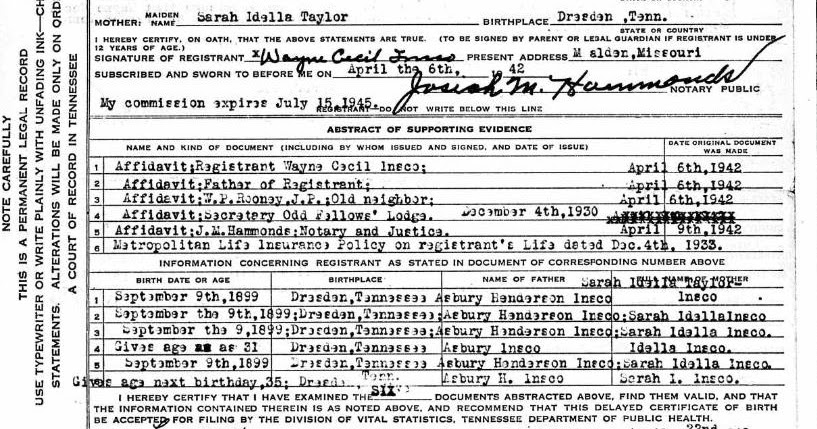 MOTHER: MAIDEN NAME Sarah Idella Taylor BIRTHPLACE Dresden ,Tenn.
STATE OR COUNTRY
I HEREBY CERTIFY, ON OATH, THAT THE ABOVE STATEMENTS ARE TRUE. (TO BE SIGNED BY PARENT OR LEGAL GUARDIAN IF REGISTRANT IS UNDER
12 YEARS OF AGE.)
SIGNATURE OF REGISTRANT x Wayne Cecil Insco PRESENT ADDRESS M alden,Missouri
SUBSCRIBED AND SWORN TO BEFORE ME ON April the 6th, 19 42
Josiah M. Hammonds NOTARY PUBLIC
My commission expires July 15,1945.
REGISTRANT DO NOT WRITE BELOW THIS LINE
ABSTRACT OF SUPPORTING EVIDENCE
NAME AND KIND OF DOCUMENT (INCLUDING BY WHOM ISSUED AND SIGNED, AND DATE OF ISSUE) DATE ORIGINAL DOCUMENT WAS MADE
1 Affidavit;Registrant Wayne Cecil Insco; April 6th,1942
2 Affidavit;Father of Registrant; April 6th,1942
3 Affidavit;W.P.Rooney,J.P.;Old neighbor; April 6th,1942
4 Affidavit;Secretary Odd Fellows' Lodge. December 4th,1930
5 Affidavit;J.M.Hammonds;Notary and Justice. April 9th,1942
6 Metropolitan Life Insurance Policy on registrant's Life dated Dec.4th, 1933.
INFORMATION CONCERNING REGISTRANT AS STATED IN DOCUMENT OF CORRESPONDING NUMBER ABOVE
BIRTH DATE OR AGE BIRTHPLACE NAME OF FATHER FULL NAME OF MOTHER
Sarah Idella Taylor
1 September 9th,1899 Dresden,Tennessee Asbury Henderson Insco Insco
2 September the 9th,1899;Dresden,Tennessee;Asbury Henderson Insco;Sarah IdellaInsco
3 September the 9,1899;Dresden,Tennessee;Asbury Henderson Insco;Sarah Idella Insco.
4 Gives age as as 31 Dresden,Tennessee Asbury Insco Idella Insco.
5 September 9th,1899 Dresden,Tennessee Asbury Henderson Insco;Sarah Idella Insco.
Gives age next birthday,35; Dresden, Tenn. Asbury H. Insco Sarah I. Insco.
I HEREBY CERTIFY THAT I HAVE EXAMINED THE SIX DOCUMENTS ABSTRACTED ABOVE, FIND THEM VALID, AND THAT
THE INFORMATION CONTAINED THEREIN IS AS NOTED ABOVE, AND RECOMMEND THAT THIS DELAYED CERTIFICATE OF BIRTH
BE ACCEPTED FOR FILING BY THE DIVISION OF VITAL STATISTICS, TENNESSEE DEPARTMENT OF PUBLIC HEALTH.
22nd
NOTE CAREFULLY
THIS IS A PERMANENT LEGAL RECORD
USE TYPEWRITER OR WRITE PLAINLY WITH UNFADING INK—CH
STATEMENTS. ALTERATIONS WILL BE MADE ONLY ON ORD
A COURT OF RECORD IN TENNESSEE